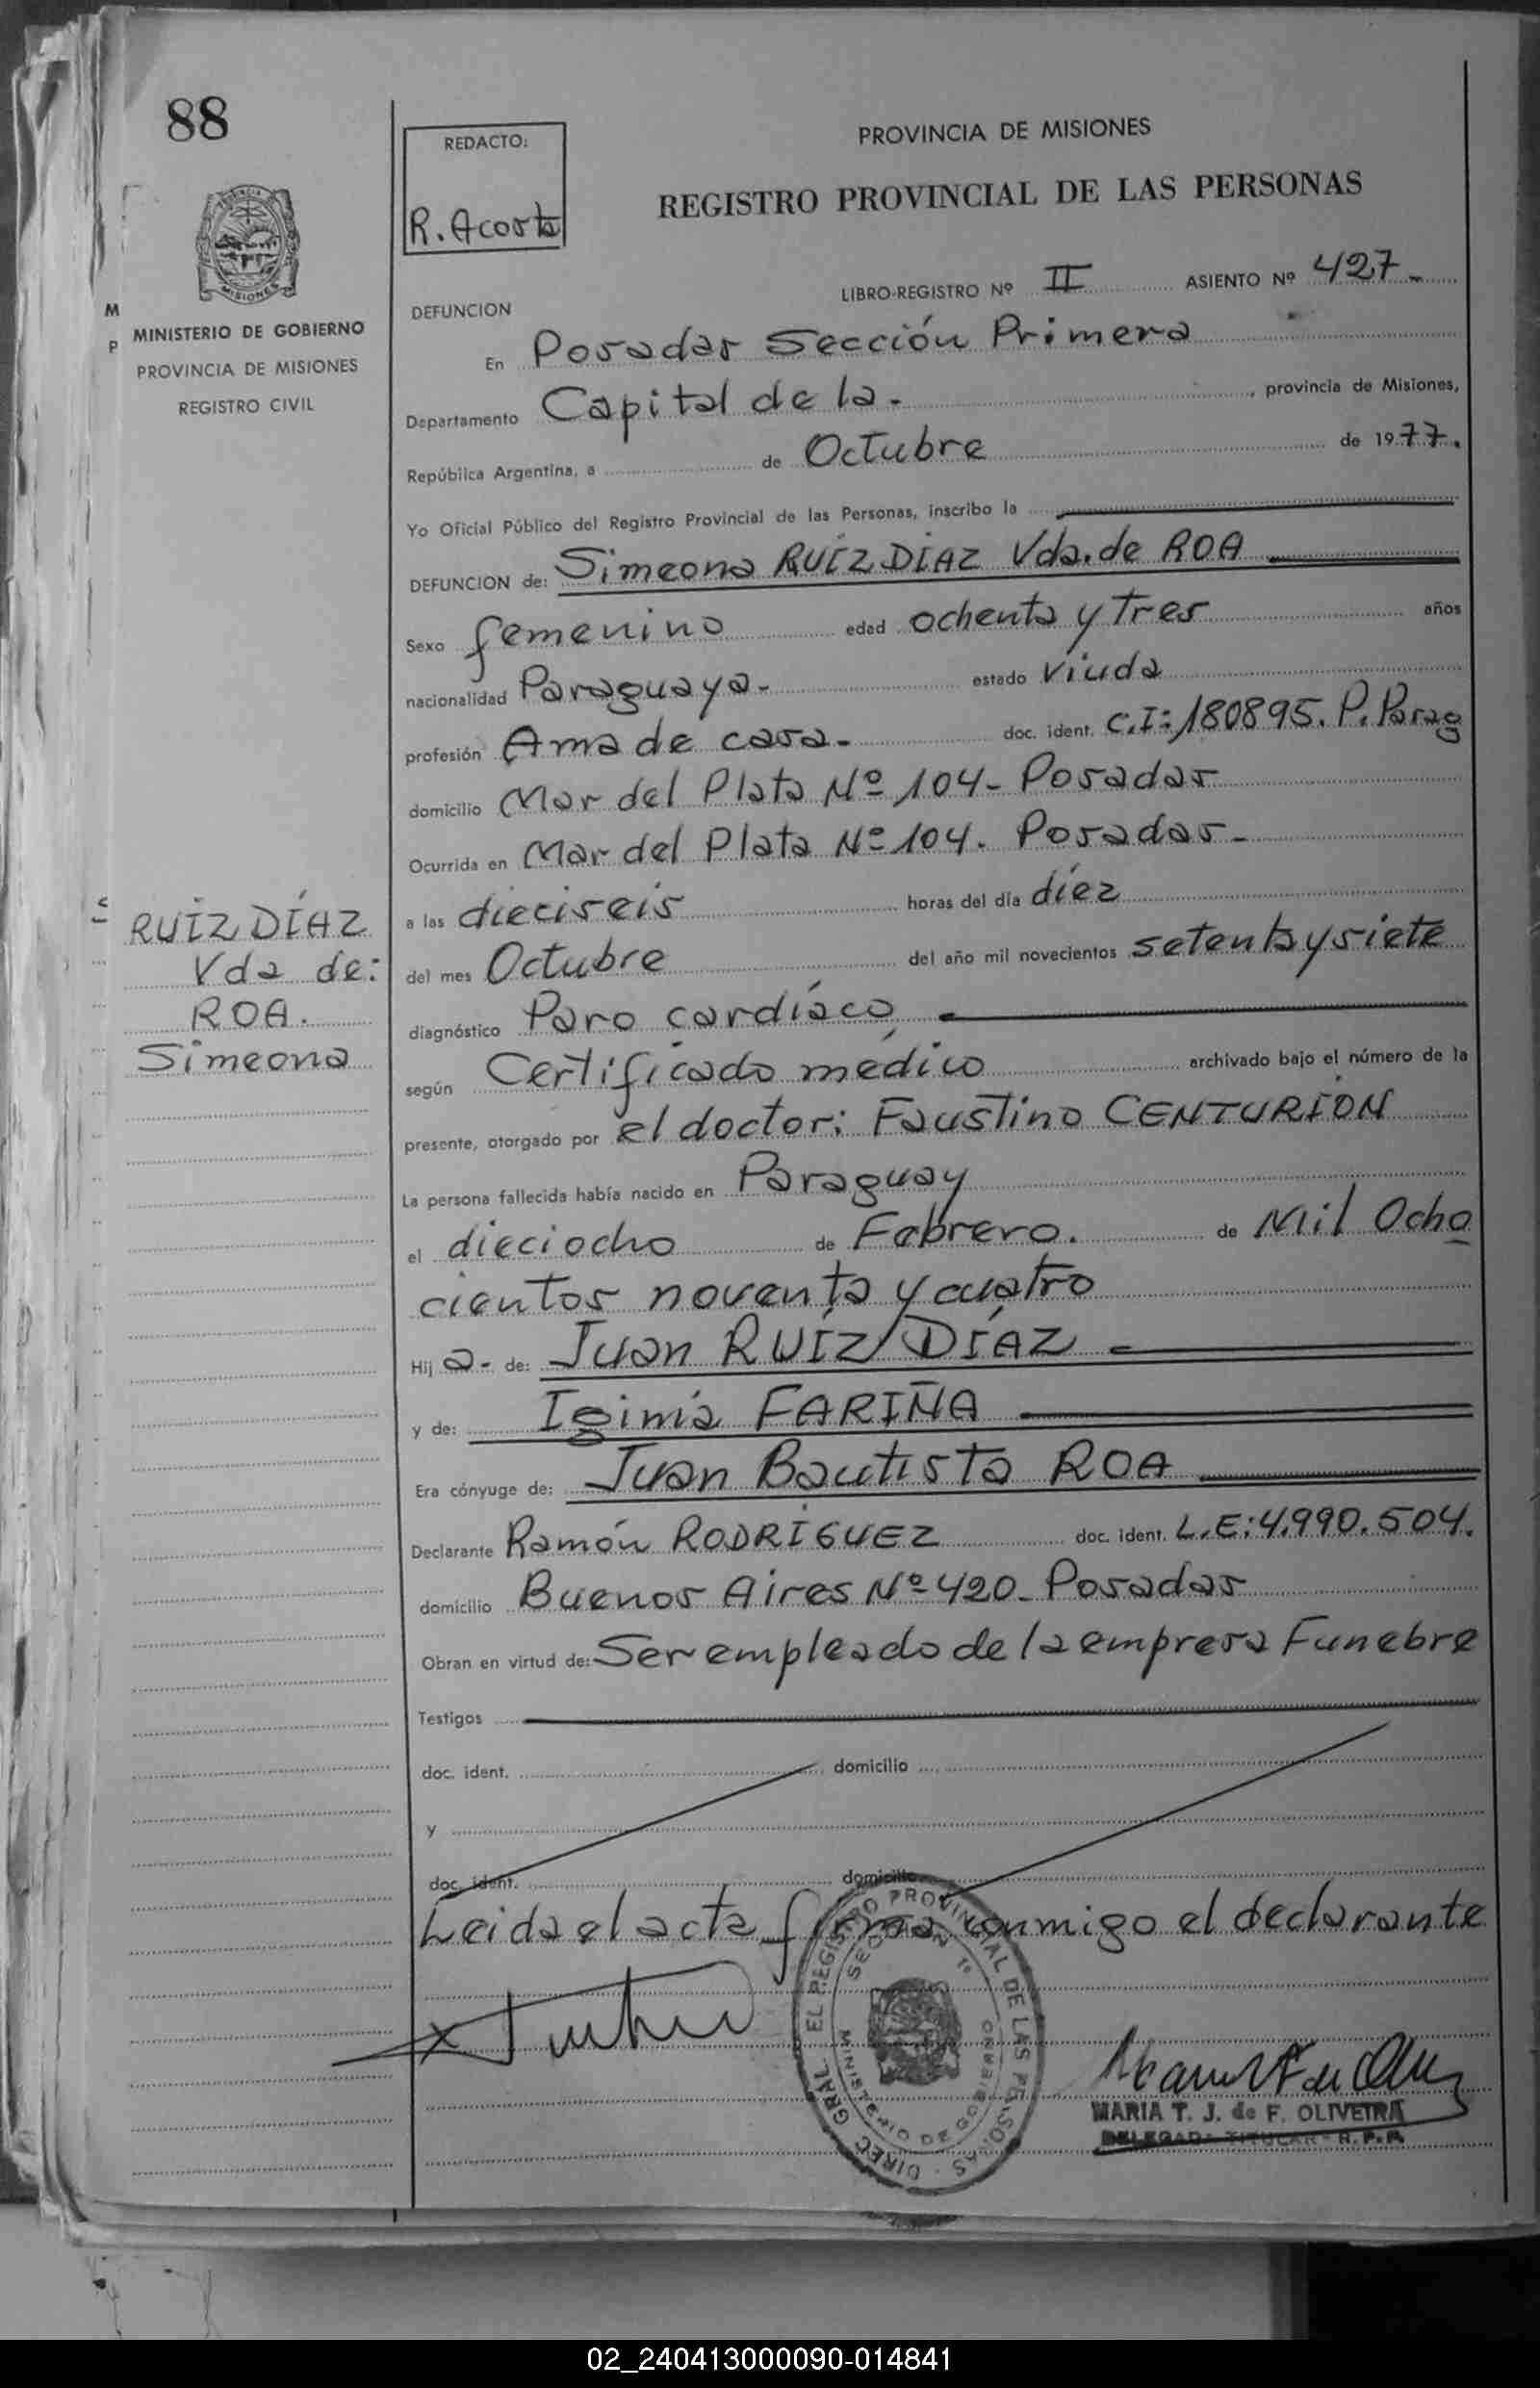 88
REDACTO:
R. Acosta
PROVINCIA DE MISIONES
REGISTRO PROVINCIAL DE LAS PERSONAS
LIBRO-REGISTRO Nº II ASIENTO Nº 427-
M
P
MINISTERIO DE GOBIERNO
PROVINCIA DE MISIONES
REGISTRO CIVIL
DEFUNCION
En Posadas Sección Primera
Departamento Capital de la- , provincia de Misiones,
República Argentina, a de Octubre de 1977.
Yo Oficial Público del Registro Provincial de las Personas, inscribo la
DEFUNCION de: Simeona RUÍZ DÍAZ Vda. de ROA
Sexo femenino edad ochenta y Tres años
nacionalidad Paraguaya- estado Viuda
profesión Ama de casa- doc. ident. C.I:180895. P. Parag
domicilio Mar del Plata Nº 104- Posadas
Ocurrida en Mar del Plata Nº 104. Posadas-
a las dieciseis horas del día díez
del mes Octubre del año mil novecientos setenta y siete
diagnóstico Paro cardíaco
según Certificado médico archivado bajo el número de la
presente, otorgado por el doctor: Faustino CENTURIÓN
La persona fallecida había nacido en Paraguay
el dieciocho de Febrero. de Mil Ocho
cientos noventa y cuatro
Hij a- de: Juan RUÍZ DÍAZ
y de: Iginia FARIÑA
Era cónyuge de: Juan Bautista ROA
Declarante Ramón RODRÍGUEZ doc. ident. L.E:4.990.504.
domicilio Buenos Aires Nº 420- Posadas
Obran en virtud de: Ser empleado de la empresa Funebre
Testigos
doc. ident. domicilio
y
doc. ident. domicilio
Leida el acta firma conmigo el declarante
RUÍZ DÍAZ
Vda de:
ROA.
Simeona
DIREC. GRAL. EL REGISTRO PROVINCIAL DE LAS PERSONAS
SECCION 1º
MINISTERIO DE GOBIERNO
MARIA T. J. de F. OLIVEIRA
DELEGADA TITULAR - R. P. P.
02_240413000090-014841